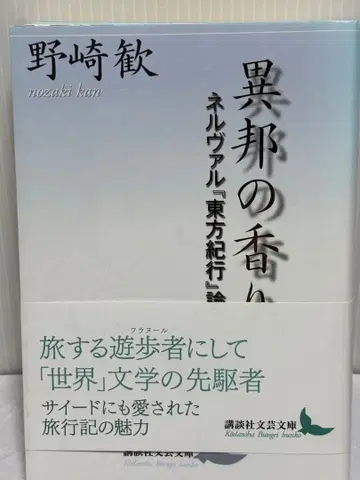 野崎歓
nozaki kan
異邦の香り
ネルヴァル『東方紀行』論
フラヌール
旅する遊歩者にして
「世界」文学の先駆者
サイードにも愛された
旅行記の魅力
講談社文芸文庫
Kōdansha Bungei bunko
講談社文芸文庫